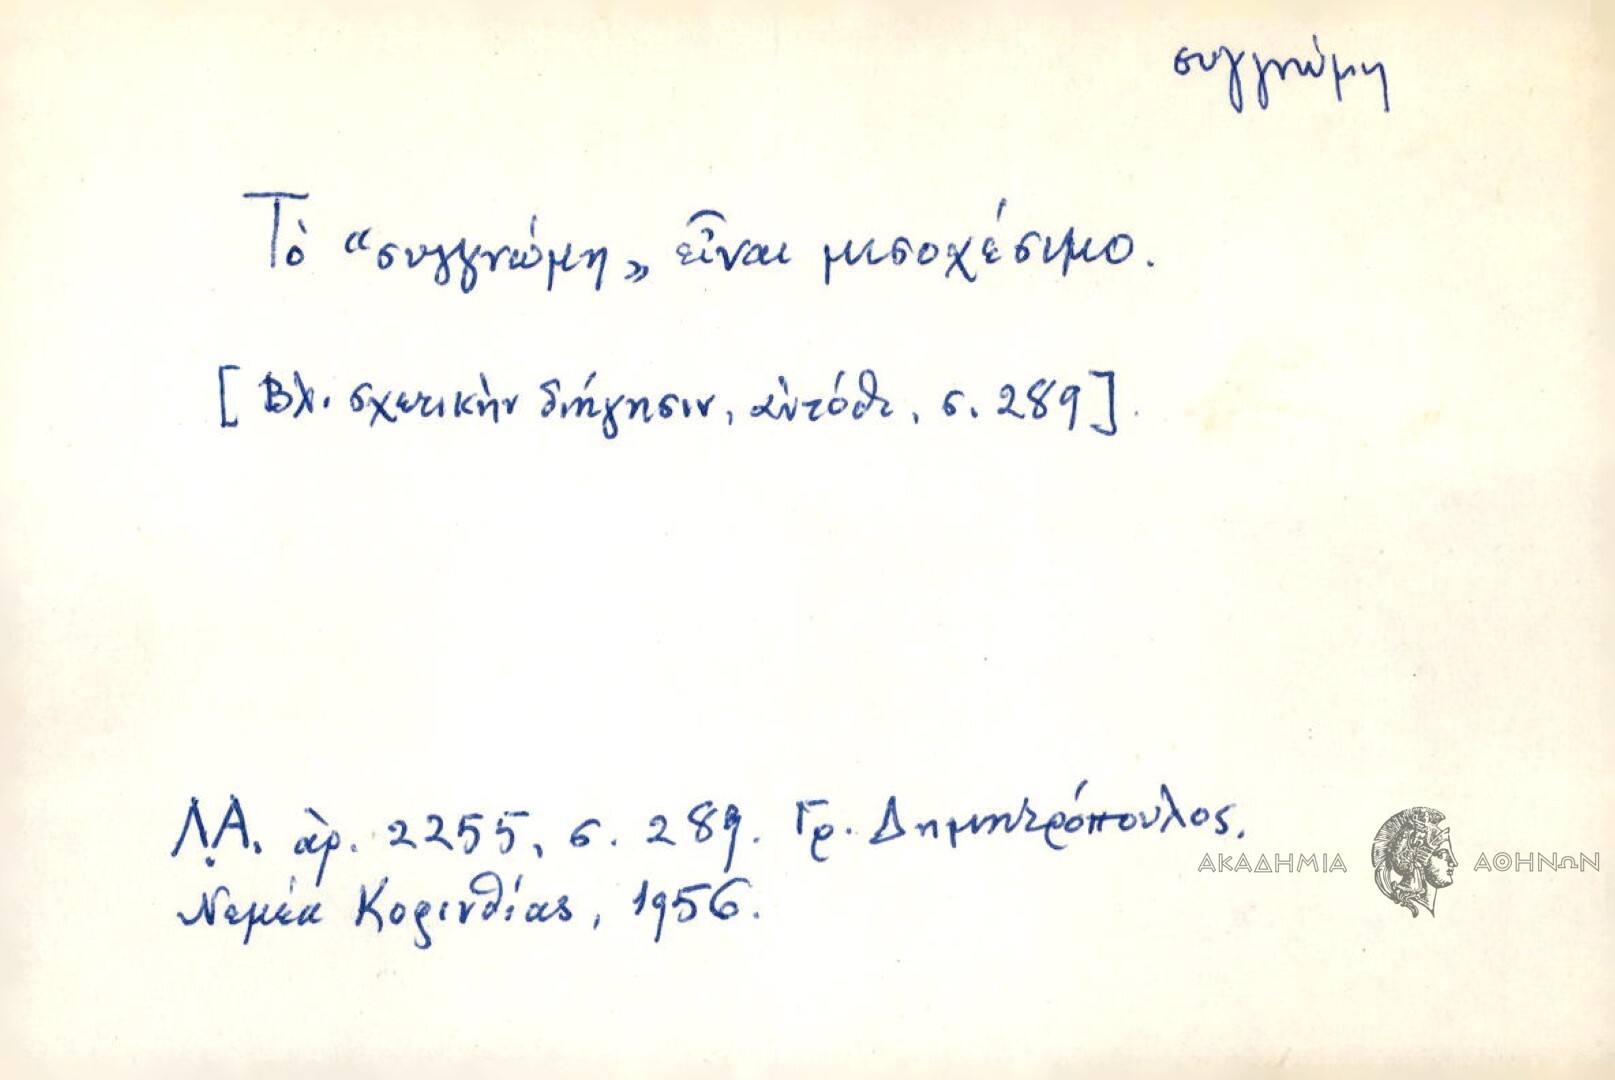 συγγνώμη
Τὸ "συγγνώμη„ εἶναι μισοχέσιμο.
[Βλ. σχετικὴν διήγησιν, αὐτόθι, σ. 289].
Λ.Α. ἀρ. 2255, σ. 289. Γρ. Δημητρόπουλος,
Νεμέα Κορινθίας, 1956.
ΑΚΑΔΗΜΙΑ ΑΘΗΝΩΝ